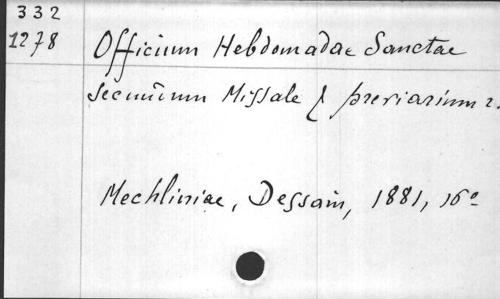 332
1278
Officium Hebdomadae Sanctae
secundum Missale & breviarium r.
Mechliniae, Dessain, 1881, 16º